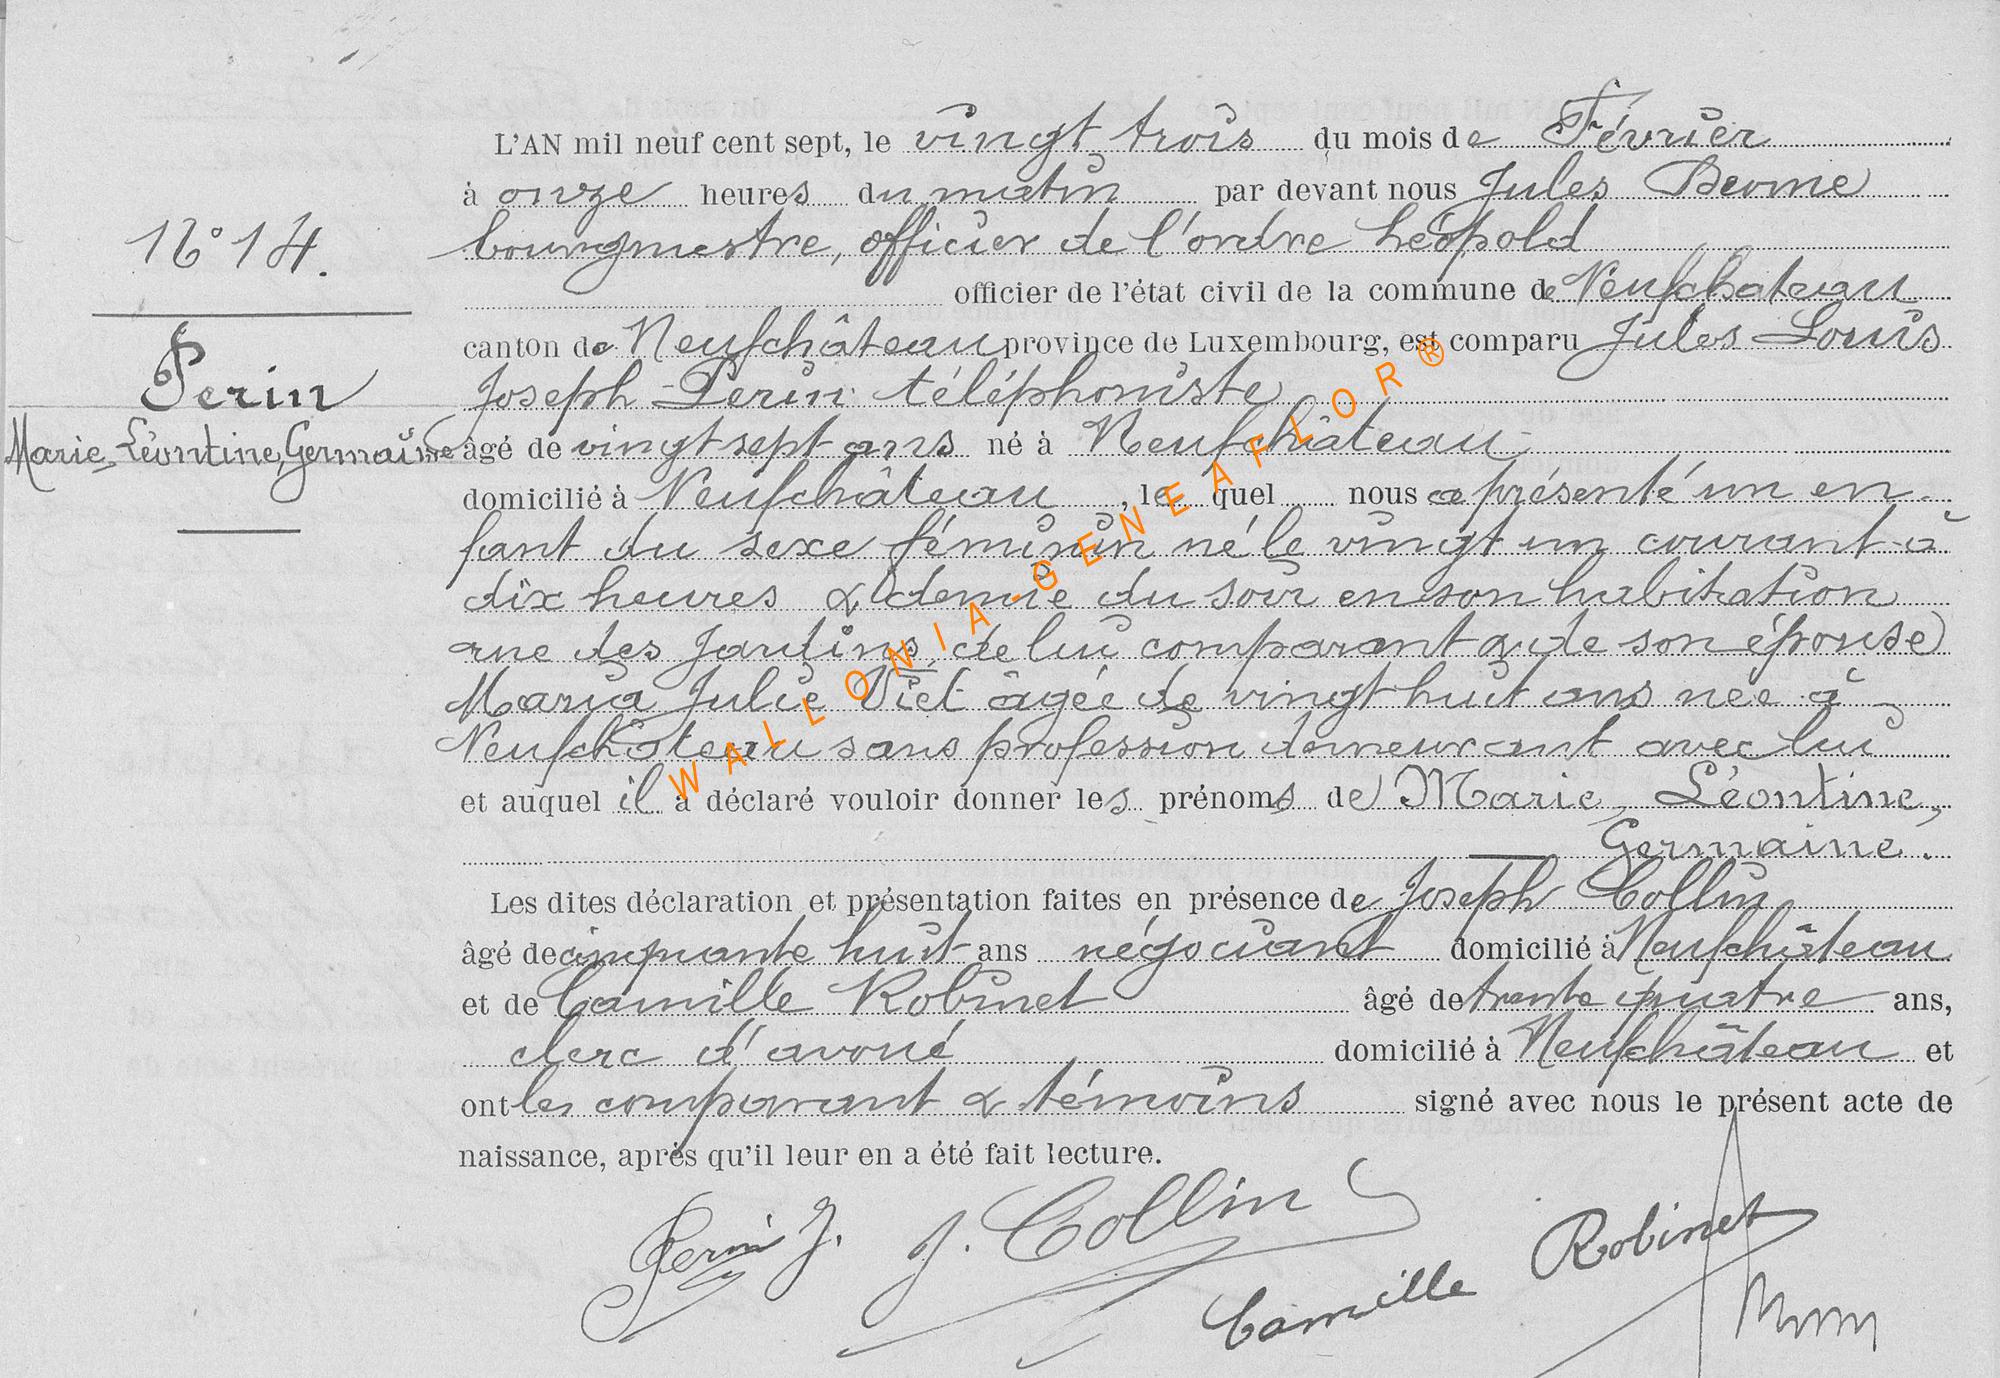 L'AN mil neuf cent sept, le vingt trois du mois de Février
à onze heures du matin par devant nous Jules
bourgmestre, officier de l'ordre Léopold
officier de l'état civil de la commune de Neufchateau
canton de Neufchâteau province de Luxembourg, est comparu Jules Louis
Joseph Perin téléphoniste
âgé de vingt sept ans né à Neufchâteau
domicilié à Neufchâteau, lequel nous a présenté un en-
fant du sexe féminin né le vingt un courant à
dix heures & demie du soir en son habitation
rue des Jardins, de lui comparant & de son épouse
Maria Julie Viet âgée de vingt huit ans née à
Neufchâteau sans profession demeurant avec lui
et auquel il a déclaré vouloir donner les prénoms de Marie, Léontine,
Germaine.
Les dites déclaration et présentation faites en présence de Joseph Collin
âgé de cinquante huit ans négociant domicilié à Neufchâteau
et de Camille Robinet âgé de trente quatre ans,
clerc d'avoué domicilié à Neufchâteau et
ont les comparant & témoins signé avec nous le présent acte de
naissance, après qu'il leur en a été fait lecture.
Perin J. J. Collin Camille Robinet
N° 14.
Perin
Marie, Léontine, Germaine
WALLONIA-GENEAFLOR®